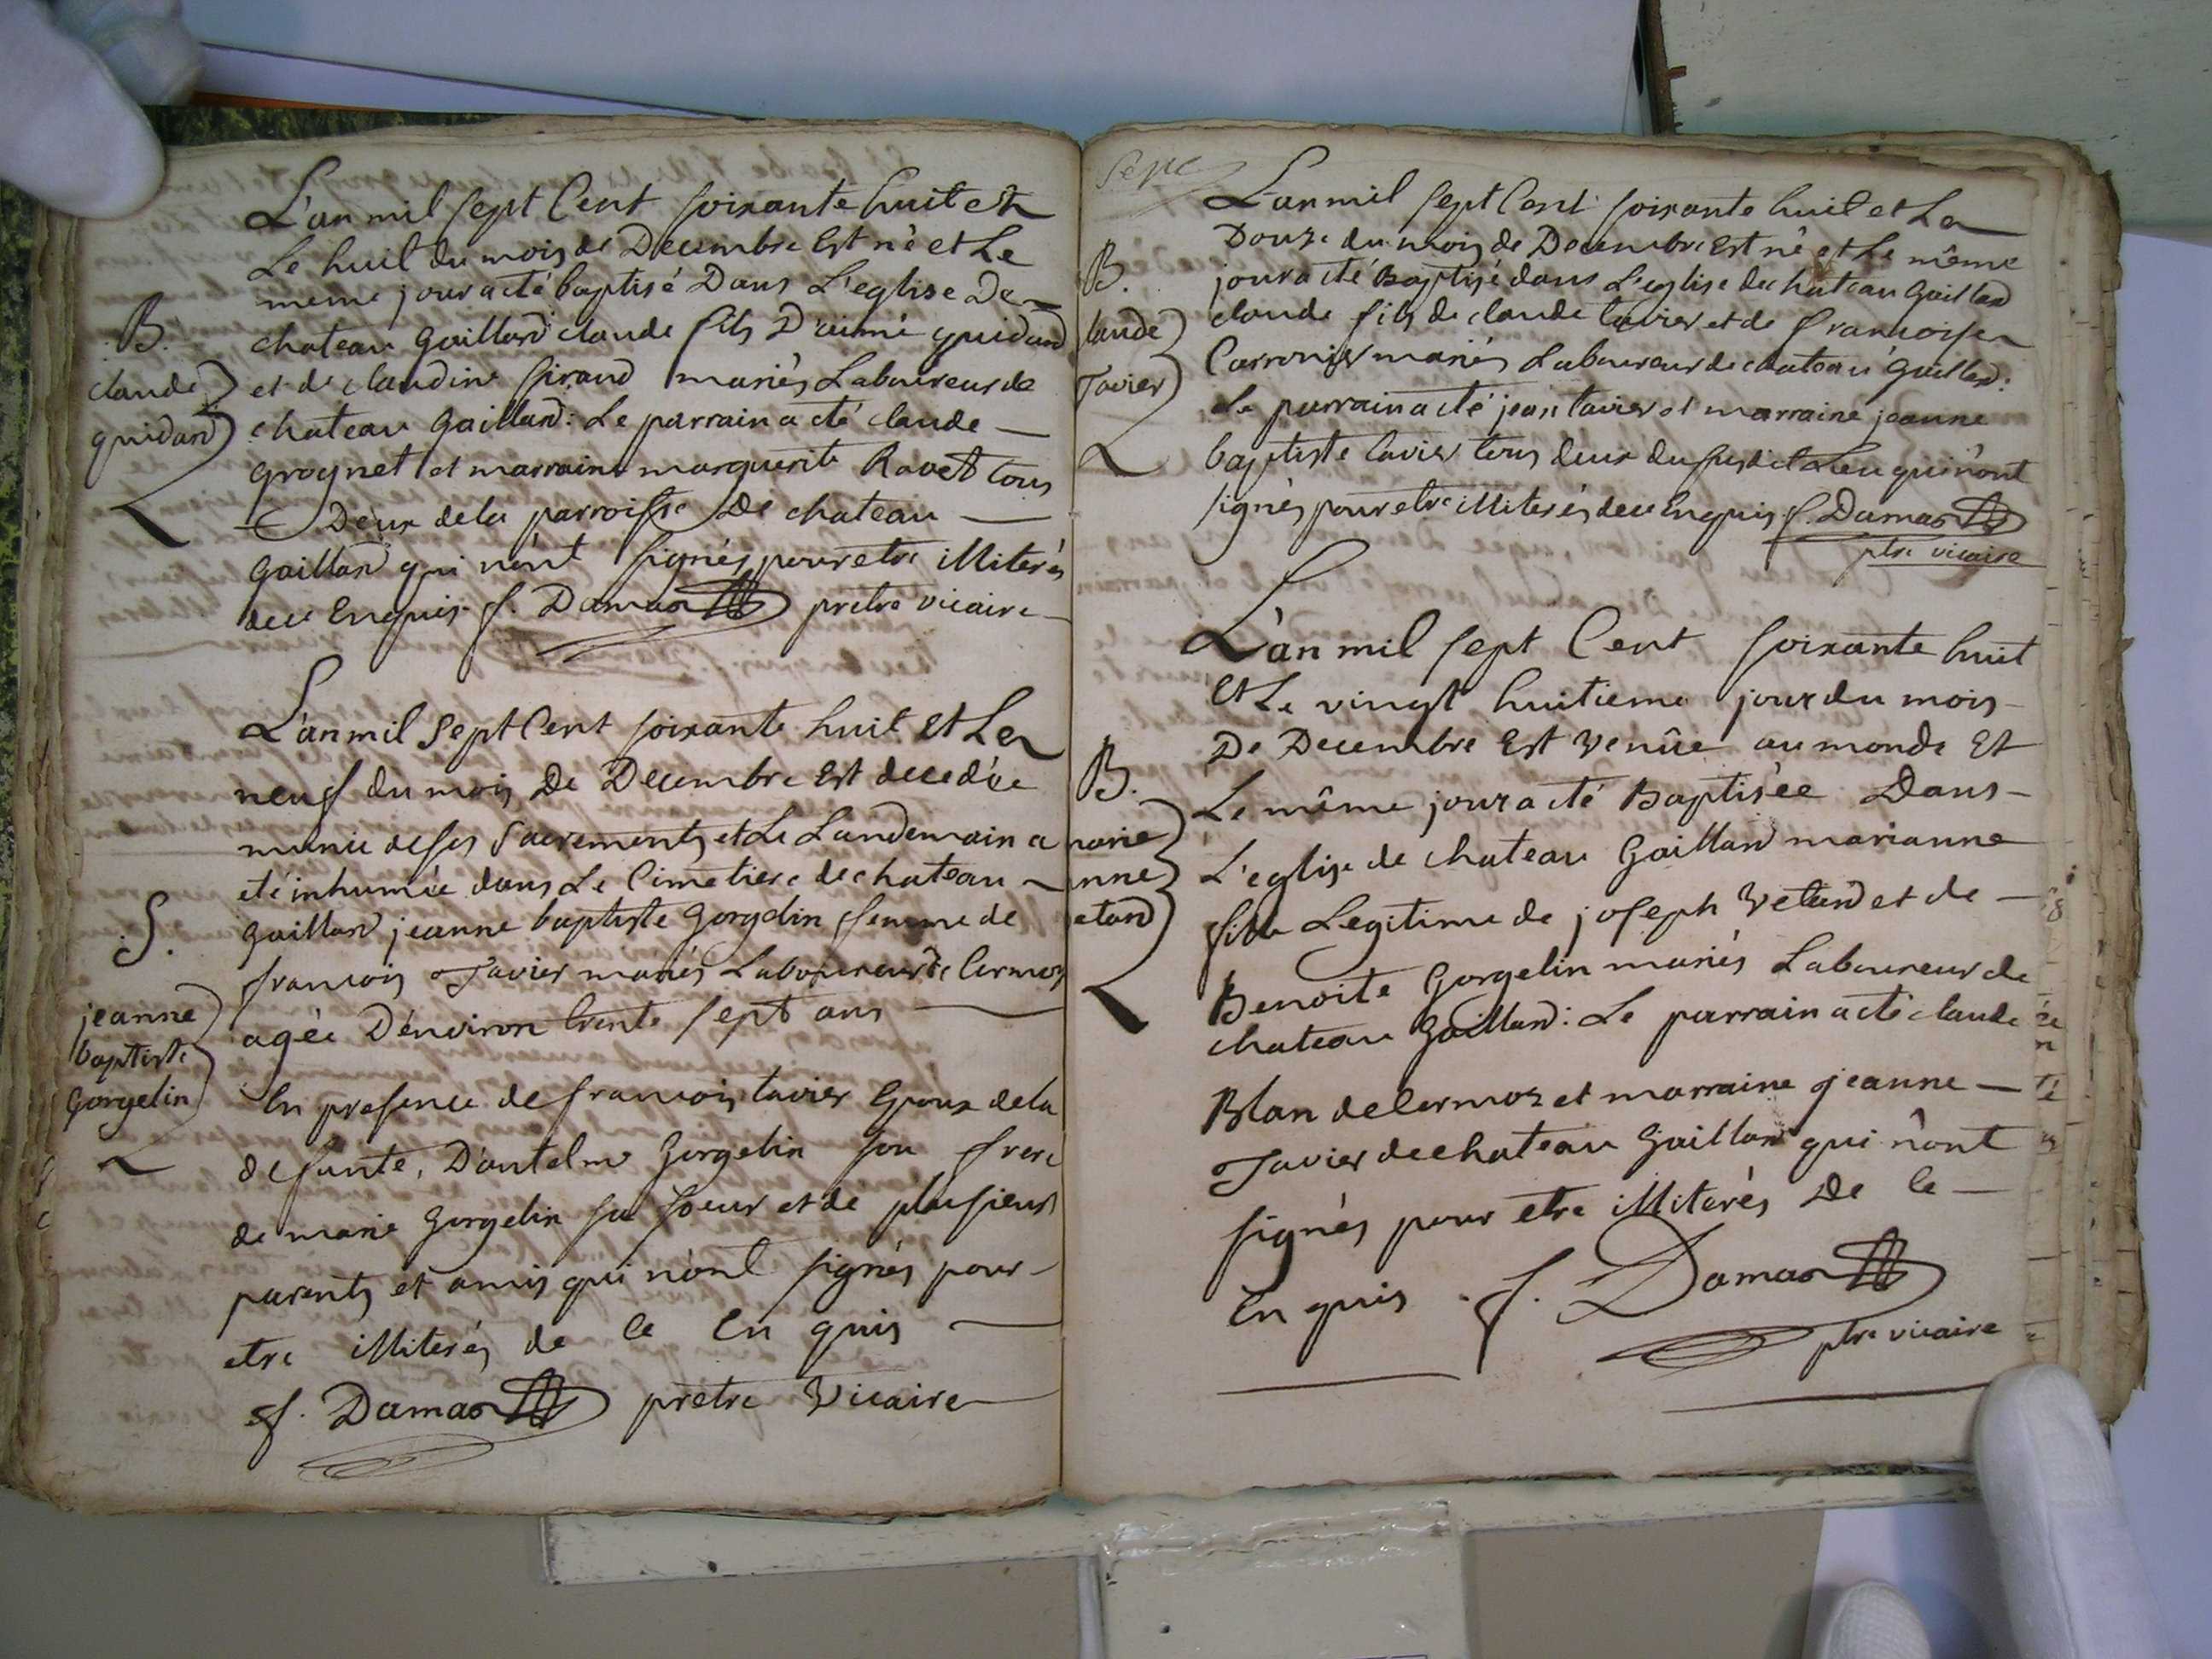 L'an mil sept Cent soixante huit et
Le huit du mois de Decembre Est né et Le
meme jour a été baptisé Dans L'eglise De
B.
chateau Gaillard claude fils D'aimé guidard
claude
et de claudine Giraud mariés Laboureur de
guidard
chateau Gaillard: Le parrain a été claude
grognet et marraine marguerite Ravet tous
Deux de la parroisse De chateau
Gaillard qui n'ont signés pour etre illiterés
de ce Enquis f. Damas prêtre vicaire
L'an mil Sept Cent soixante huit et Le
neuf du mois De Decembre Est decedée
munie de ses Sacrements et Le Landemain a
eté inhumée dans Le Cimetiere de chateau
S.
Gaillard jeanne baptiste Gorgelin femme de
francois Tavier mariés Laboureur de Cormoz
jeanne
agée D'environ trente sept ans
baptiste
Gorgelin
En presence de francois tavier Epoux de la
defunte, D'antelme Gorgelin son frere
de marie Gorgelin sa soeur et de plusieurs
parents et amis qui n'ont signés pour
etre illiterés de ce En quis
f. Damas prêtre Vicaire
L'an mil sept Cent soixante huit et Le
Douze du mois de Decembre Est né et Le même
B.
jour a été Baptisé dans L'eglise de chateau Gaillard
laude
claude fils de claude tavier et de francoise
Tavier
Carronier mariés Laboureur de chateau Gaillard:
Le parrain a été jean tavier et marraine jeanne
baptiste tavier tous deux du susdit Lieu qui n'ont
signés pour etre illiterés de ce Enquis f. Damas
ptre vicaire
L'an mil sept Cent soixante huit
Et Le vingt huitieme jour du mois
De Decembre Est Venûe au monde Et
B.
Le même jour a été Baptisée Dans
marie
L'eglise de chateau Gaillard marianne
nne
etard
fille Legitime de joseph Vetard et de
Benoite Gorgelin mariés Laboureur de
chateau Gaillard: Le parrain a été claude
Blan de Cormoz et marraine jeanne
Tavier de chateau Gaillard qui n'ont
signés pour etre illiterés De Ce
En quis f. Damas
ptre vicaire